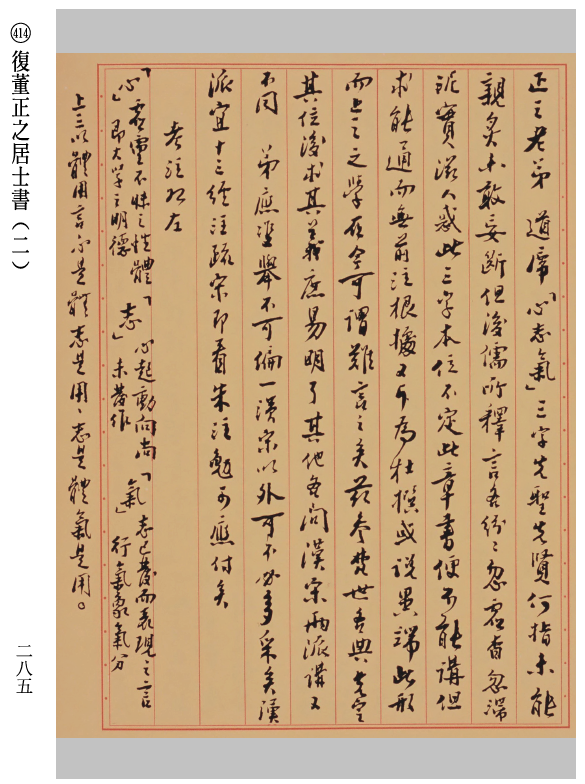 414 復董正之居士書（二）
正之老弟　道席「心志氣」三字先聖先賢何指未能
親炙未敢妄斷但後儒所釋言各紛紛忽
實滋人惑此三字本位不定此章書便不能講但
求能通而無前注根據又斥為杜撰或說異端此形
而上之之學在今可謂難言之矣茲參梵世各典先定
其位後求其義庶易明了其他各問漢宋兩派講又
不同　弟應並舉不可偏一漢宋以外可不必多采矣漢
派宜十三經注疏宋即看朱注勉可應付矣
考注如左
「心」虛靈不昧之性體即大學之明德「志」心起動向尚未發作「氣」志已發而表現之言行氣象氣分
上三以體用言心是體志是用、志是體氣是用。
二八五